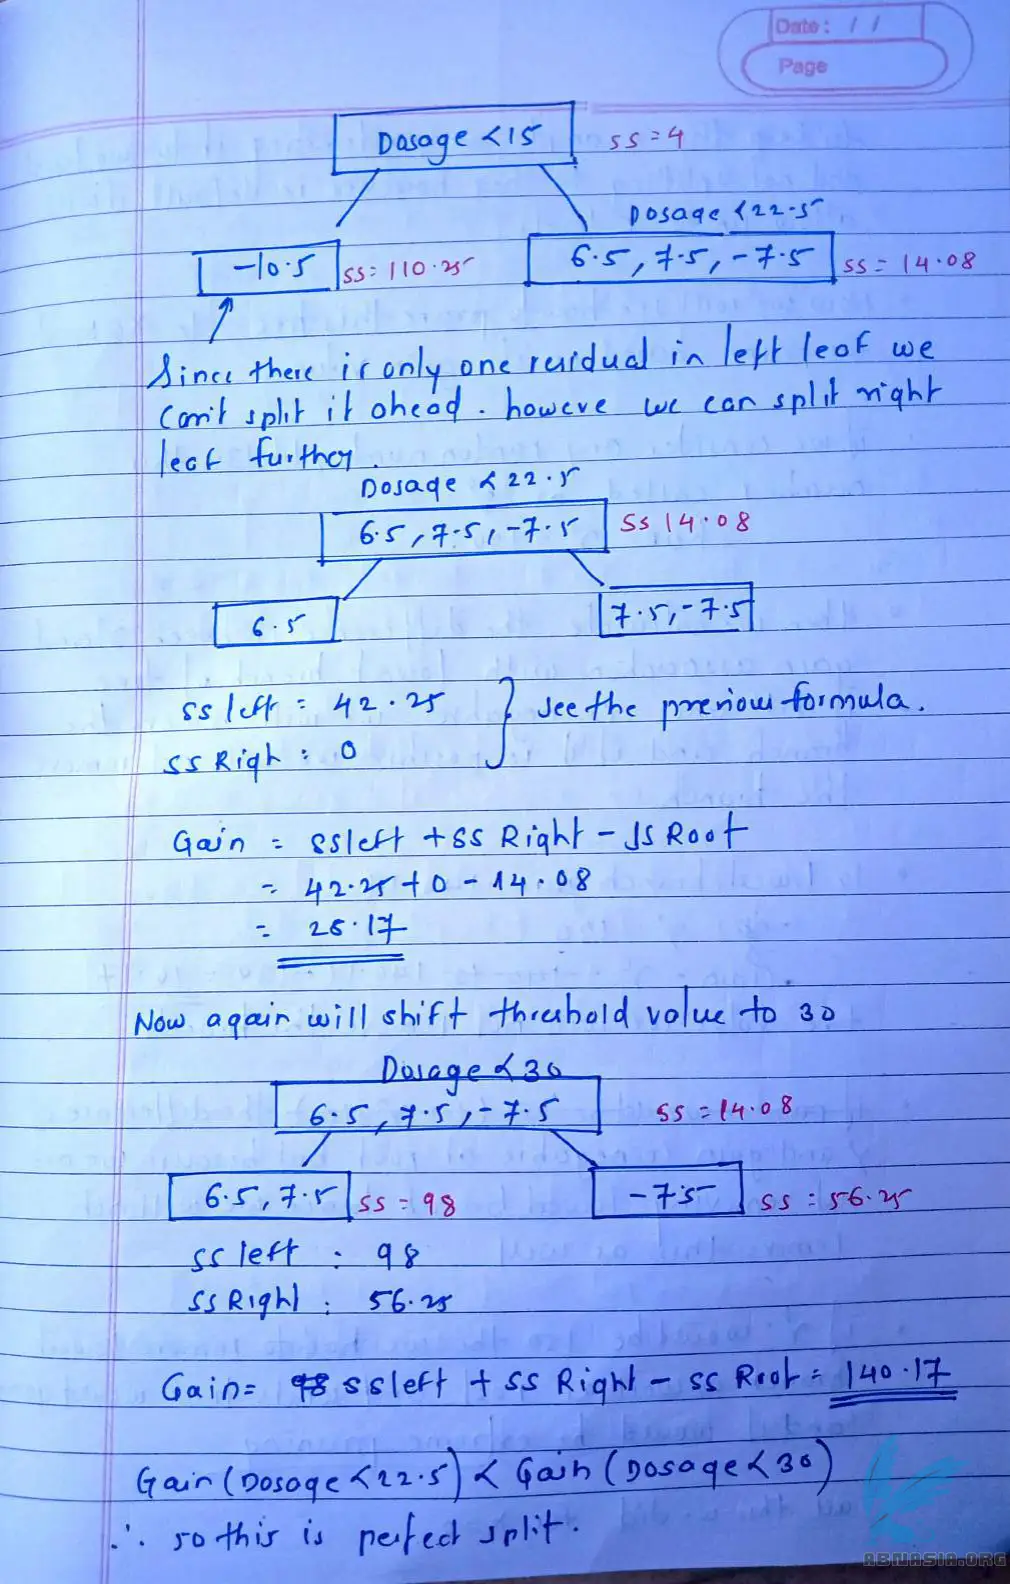 Date: / /
Page
Dosage <15 SS=4
Dosage <22.5
-10.5 SS=110.25 6.5, 7.5, -7.5 SS=14.08
Since there is only one residual in left leaf we
Can't split it ahead. howeve we can split right
leaf further.
Dosage <22.5
6.5, 7.5, -7.5 SS 14.08
6.5 7.5, -7.5
SS left = 42.25 } see the previous formula.
SS Righ : 0
Gain = SSleft + SS Right - SS Root
= 42.25 + 0 - 14.08
= 28.17
Now again will shift threshold value to 30
Dosage <30
6.5, 7.5, -7.5 SS = 14.08
6.5, 7.5 SS = 98 -7.5 SS = 56.25
SS left : 98
SS Right : 56.25
Gain = SSleft + SS Right - SS Root = 140.17
Gain (Dosage <22.5) < Gain (Dosage <30)
∴ so this is perfect split.
ABNASIA.ORG